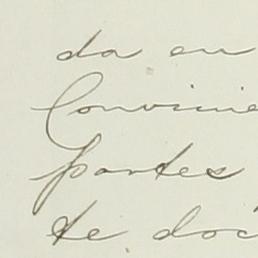 da en
Convinie
partes
te doc